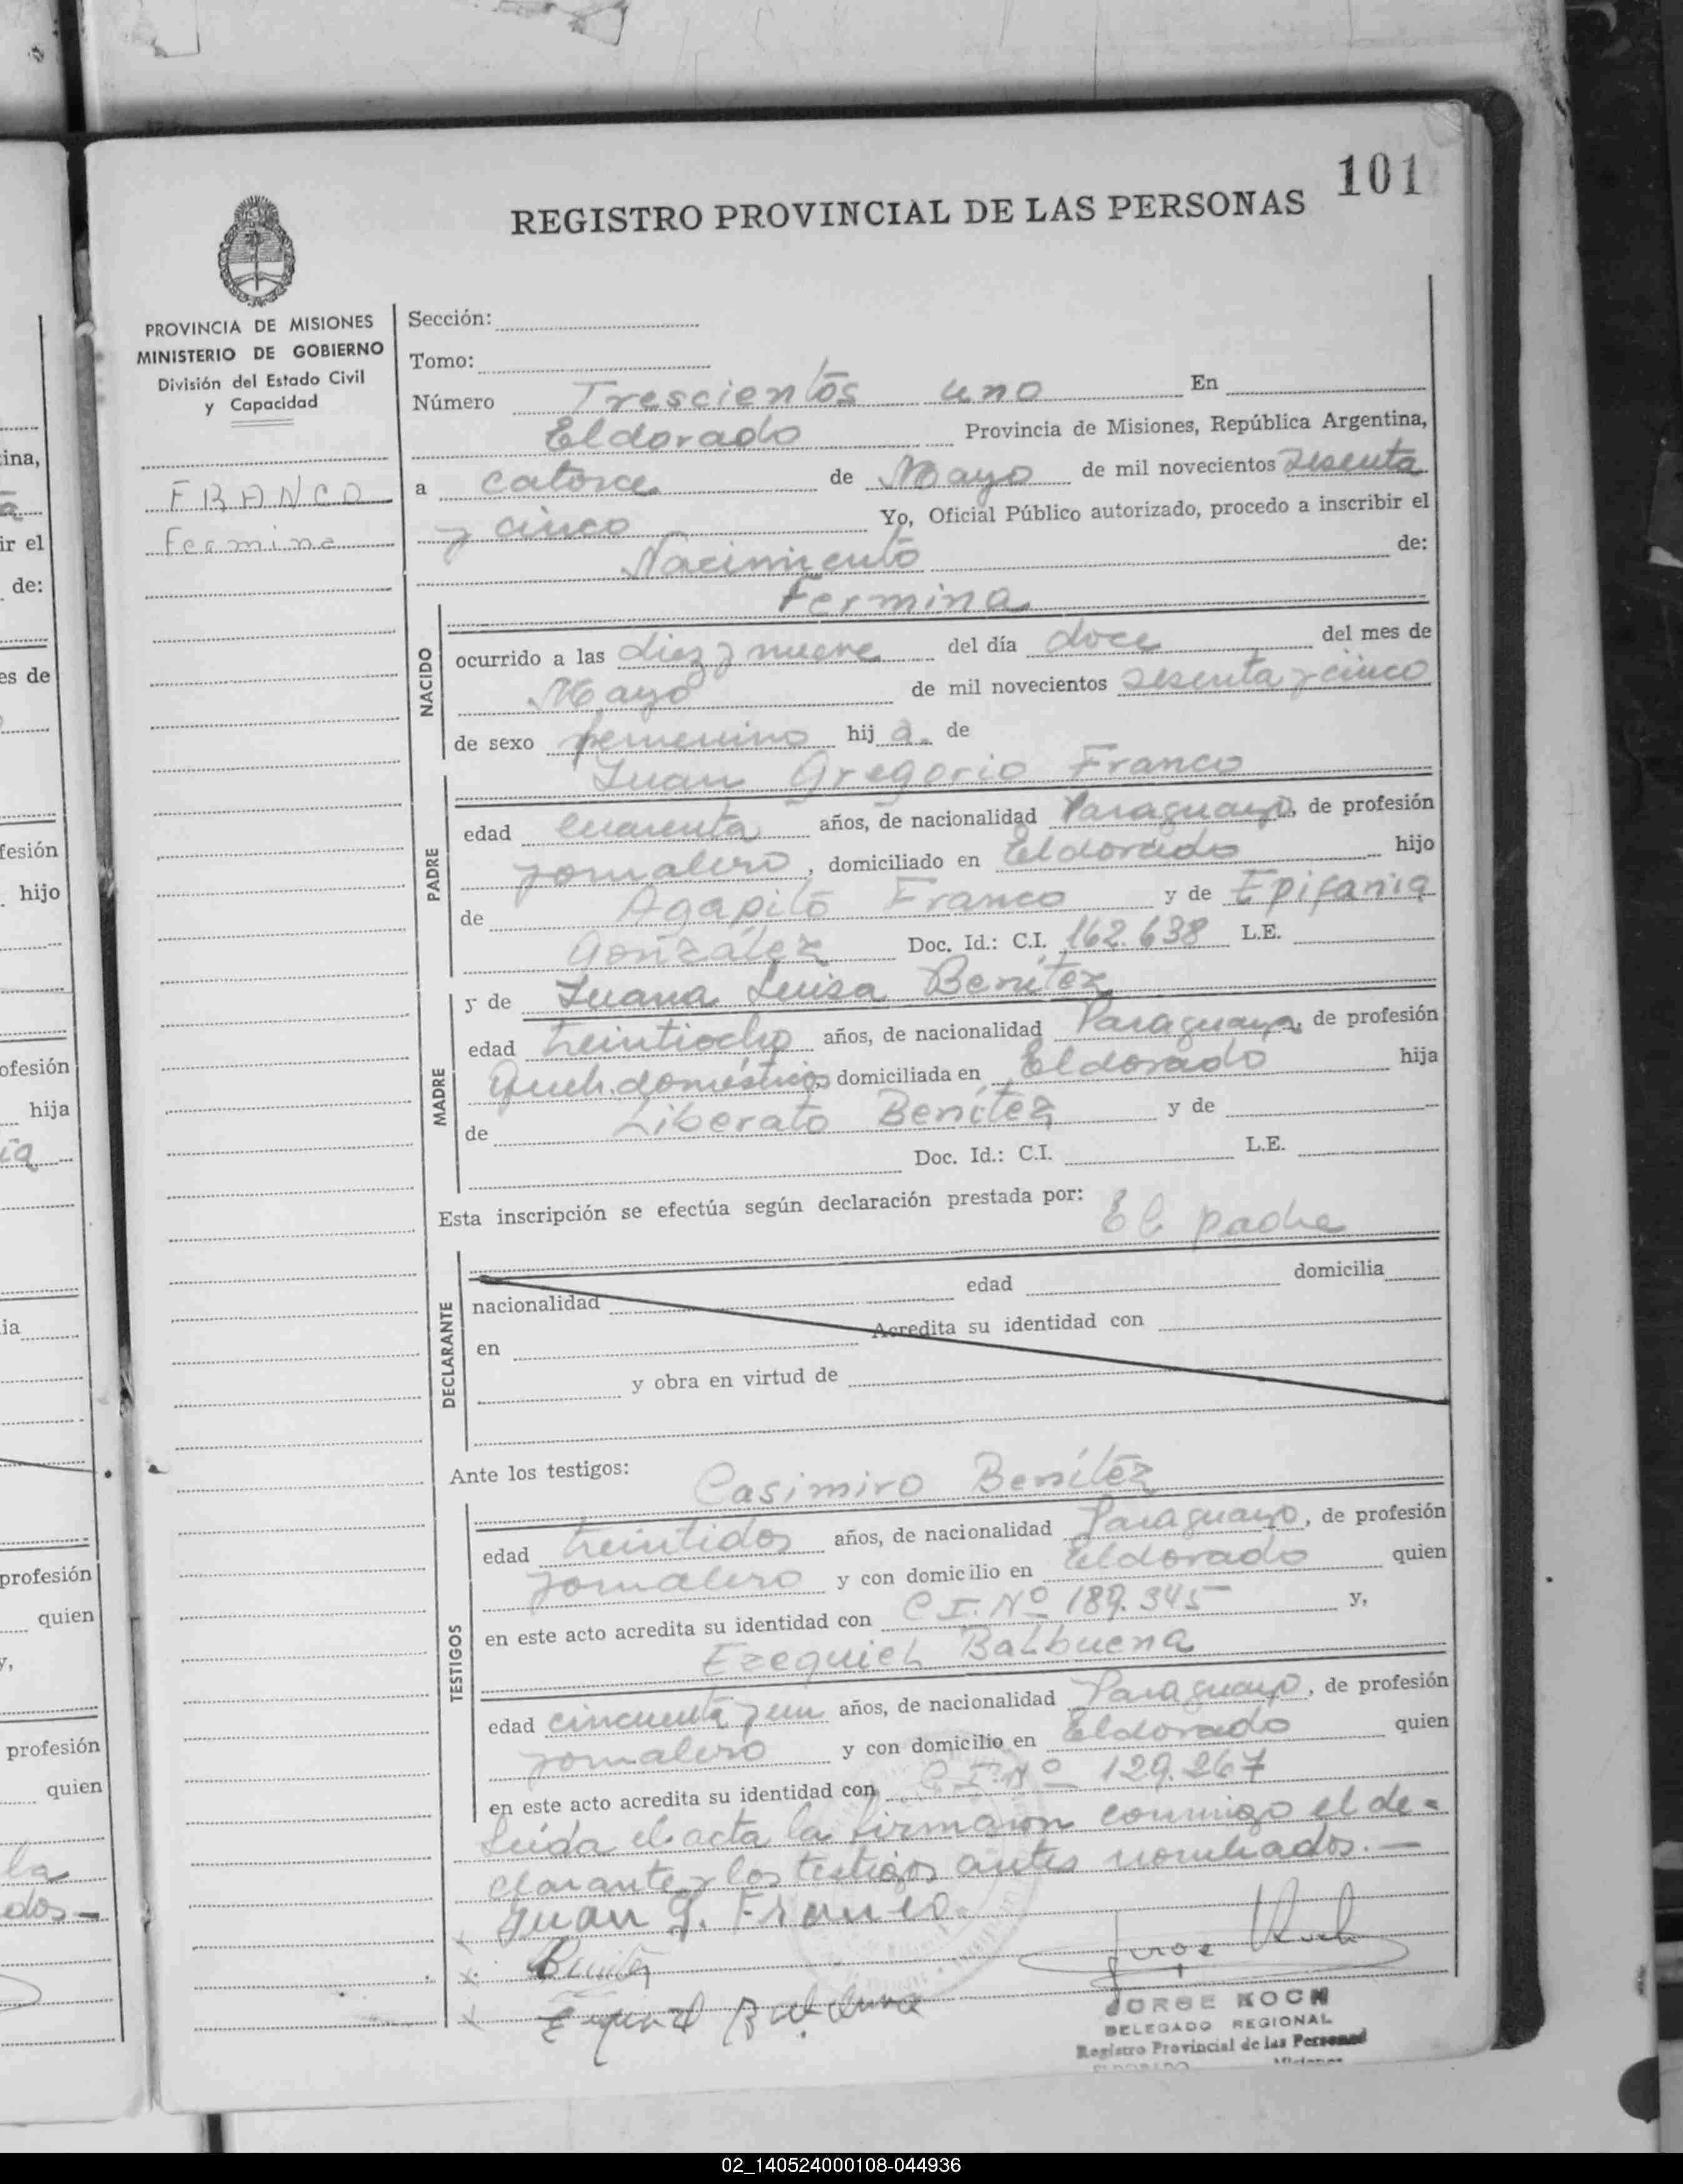 101
REGISTRO PROVINCIAL DE LAS PERSONAS
PROVINCIA DE MISIONES
MINISTERIO DE GOBIERNO
División del Estado Civil
y Capacidad
FRANCO
Fermina
Sección:
Tomo:
Número Trescientos uno En
Eldorado Provincia de Misiones, República Argentina,
a catorce de Mayo de mil novecientos sesenta
y cinco Yo, Oficial Público autorizado, procedo a inscribir el
Nacimiento de:
Fermina
NACIDO
ocurrido a las diez y nueve del día doce del mes de
Mayo de mil novecientos sesenta y cinco
de sexo femenino hij a. de
Juan Gregorio Franco
PADRE
edad cuarenta años, de nacionalidad Paraguayo, de profesión
jornalero, domiciliado en Eldorado hijo
de Agapito Franco y de Epifania
González Doc. Id.: C.I. 162.638 L.E.
MADRE
y de Juana Luisa Benítez
edad treintiocho años, de nacionalidad Paraguaya, de profesión
Queh. domésticos, domiciliada en Eldorado hija
de Liberato Benítez y de
Doc. Id.: C.I. L.E.
Esta inscripción se efectúa según declaración prestada por: El padre
DECLARANTE
nacionalidad edad domicilia
en Acredita su identidad con
y obra en virtud de
Ante los testigos: Casimiro Benítez
TESTIGOS
edad treintidos años, de nacionalidad Paraguayo, de profesión
jornalero y con domicilio en Eldorado quien
en este acto acredita su identidad con C.I. Nº 189.345 y,
Ezequiel Balbuena
edad cincuenta y un años, de nacionalidad Paraguayo, de profesión
jornalero y con domicilio en Eldorado quien
en este acto acredita su identidad con C.I. Nº 129.267
Leída el acta la firmaron conmigo el de-
clarante y los testigos antes nombrados.—
x Juan G. Franco
x Benítez
x Ezequiel Balbuena
Jorge Koch
JORGE KOCH
DELEGADO REGIONAL
Registro Provincial de las Personas
ELDORADO Misiones
ina,
ir el
de:
es de
fesión
hijo
ofesión
hija
ia
profesión
quien
y,
profesión
quien
la
dos-
02_140524000108-044936